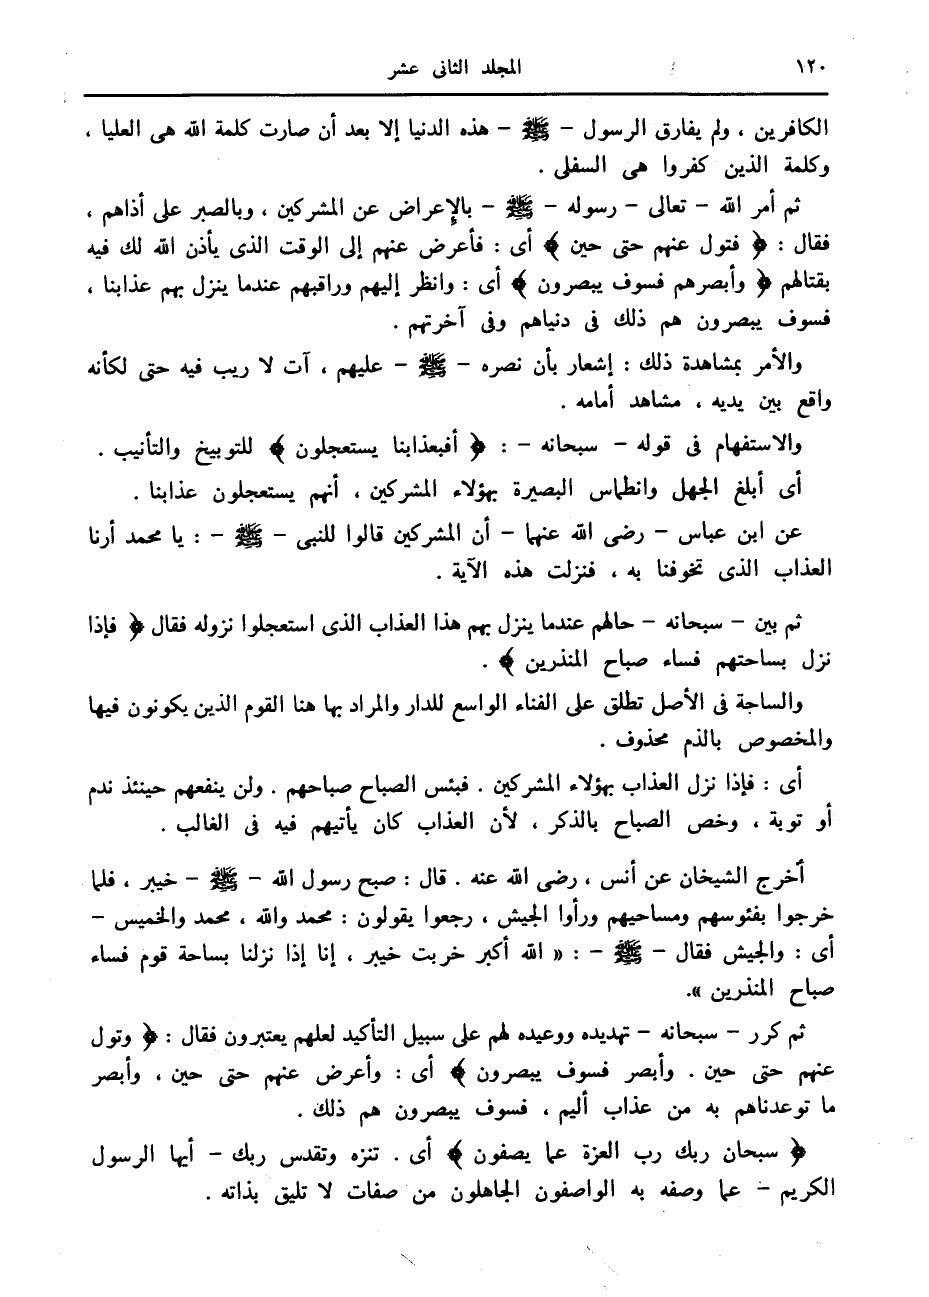 ١٢٠ المجلد الثانى عشر
الكافرين ، ولم يفارق الرسول – ﷺ – هذه الدنيا إلا بعد أن صارت كلمة الله هى العليا ،
وكلمة الذين كفروا هى السفلى .
ثم أمر الله – تعالى – رسوله – ﷺ – بالإعراض عن المشركين ، وبالصبر على أذاهم ،
فقال : ﴿ فتول عنهم حتى حين ﴾ أى : فأعرض عنهم إلى الوقت الذى يأذن الله لك فيه
بقتالهم ﴿ وأبصرهم فسوف يبصرون ﴾ أى : وانظر إليهم وراقبهم عندما ينزل بهم عذابنا ،
فسوف يبصرون هم ذلك فى دنياهم وفى آخرتهم .
والأمر بمشاهدة ذلك : إشعار بأن نصره – ﷺ – عليهم ، آت لا ريب فيه حتى لكأنه
واقع بين يديه ، مشاهد أمامه .
والاستفهام فى قوله – سبحانه – : ﴿ أفبعذابنا يستعجلون ﴾ للتوبيخ والتأنيب .
أى أبلغ الجهل وانطماس البصيرة بهؤلاء المشركين ، أنهم يستعجلون عذابنا .
عن ابن عباس – رضى الله عنهما – أن المشركين قالوا للنبى – ﷺ – : يا محمد أرنا
العذاب الذى تخوفنا به ، فنزلت هذه الآية .
ثم بين – سبحانه – حالهم عندما ينزل بهم هذا العذاب الذى استعجلوا نزوله فقال ﴿ فإذا
نزل بساحتهم فساء صباح المنذرين ﴾ .
والساجة فى الأصل تطلق على الفناء الواسع للدار والمراد بها هنا القوم الذين يكونون فيها
والمخصوص بالذم محذوف .
أى : فإذا نزل العذاب بهؤلاء المشركين . فبئس الصباح صباحهم . ولن ينفعهم حينئذ ندم
أو توبة ، وخص الصباح بالذكر ، لأن العذاب كان يأتيهم فيه فى الغالب .
أخرج الشيخان عن أنس ، رضى الله عنه . قال : صبح رسول الله – ﷺ – خيبر ، فلما
خرجوا بفئوسهم ومساحيهم ورأوا الجيش ، رجعوا يقولون : محمد والله ، محمد والخميس –
أى : والجيش فقال – ﷺ – : « الله أكبر خربت خيبر ، إنا إذا نزلنا بساحة قوم فساء
صباح المنذرين ».
ثم كرر – سبحانه – تهديده ووعيده لهم على سبيل التأكيد لعلهم يعتبرون فقال : ﴿ وتول
عنهم حتى حين . وأبصر فسوف يبصرون ﴾ أى : وأعرض عنهم حتى حين ، وأبصر
ما توعدناهم به من عذاب أليم ، فسوف يبصرون هم ذلك .
﴿ سبحان ربك رب العزة عما يصفون ﴾ أى . تنزه وتقدس ربك – أيها الرسول
الكريم – عما وصفه به الواصفون الجاهلون من صفات لا تليق بذاته .